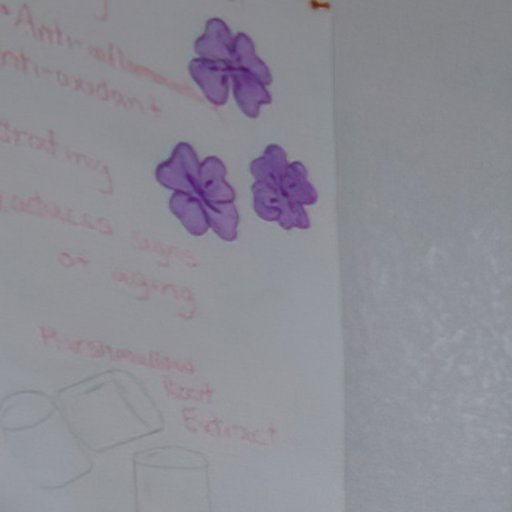 Anti-inflam
nti-oxidant
drating
reduces signs
of aging
Marshmallow
Root
Extract